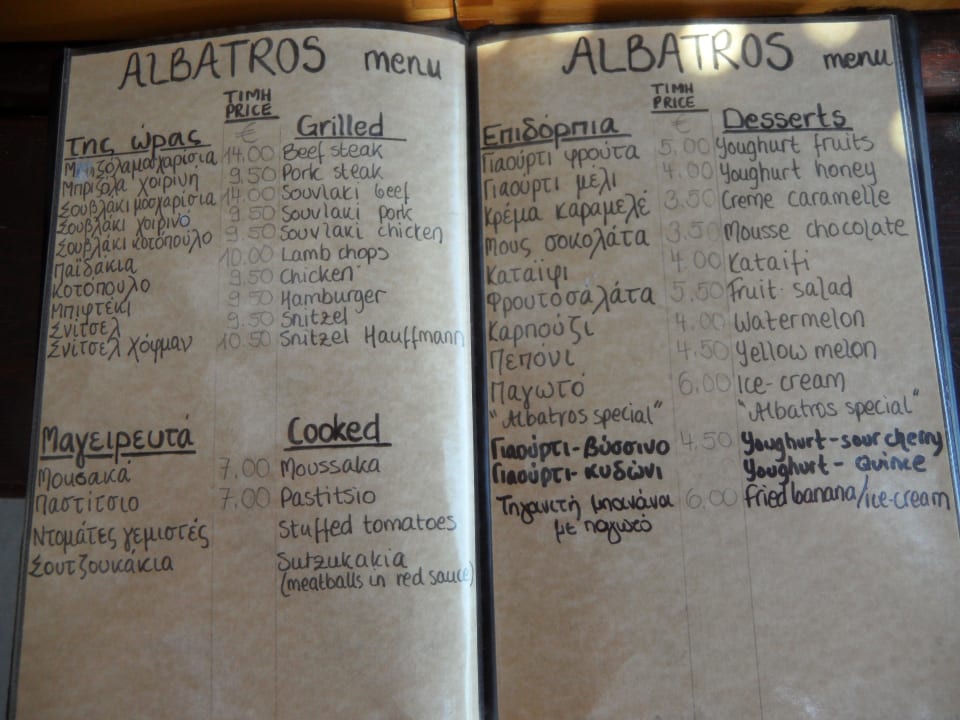 ALBATROS menu
ΤΙΜΗ
PRICE
Της ώρας € Grilled
14.00 Beef steak
Μπριζόλα χοιρινή 9.50 Pork steak
Σουβλάκι μοσχαρίσια 14.00 Souvlaki beef
Σουβλάκι χοιρινο 9.50 Souvlaki pork
Σουβλάκι κοτόπουλο 9.50 Souvlaki chicken
Παϊδάκια 10.00 Lamb chops
Κοτόπουλο 9.50 Chicken
Μπιφτέκι 9.50 Hamburger
Σνίτσελ 9.50 Snitzel
Σνίτσελ χόφμαν 10.50 Snitzel Hauffmann
Μαγειρευτά Cooked
Μουσακά 7.00 Moussaka
Παστίτσιο 7.00 Pastitsio
Ντομάτες γεμιστές Stuffed tomatoes
Σουτζουκάκια Sutzukakia
(meatballs in red sauce)
ALBATROS menu
ΤΙΜΗ
PRICE
Επιδόρπια € Desserts
Γιαούρτι φρούτα 5.00 Youghurt fruits
Γιαούρτι μέλι 4.00 Youghurt honey
Κρέμα καραμελέ 3.50 Creme caramelle
Μους σοκολάτα 3.50 Mousse chocolate
Καταϊφι 4.00 Kataifi
Φρουτοσαλάτα 5.50 Fruit salad
Καρπούζι 4.00 Watermelon
Πεπόνι 4.50 Yellow melon
Παγωτό 6.00 Ice-cream
"Albatros special" "Albatros special"
Γιαούρτι-βύσσινο 4.50 Youghurt-sour cherry
Γιαούρτι-κυδώνι Youghurt-Quince
Τηγανιτή μπανάνα 6.00 Fried banana/ice-cream
με παγωτό